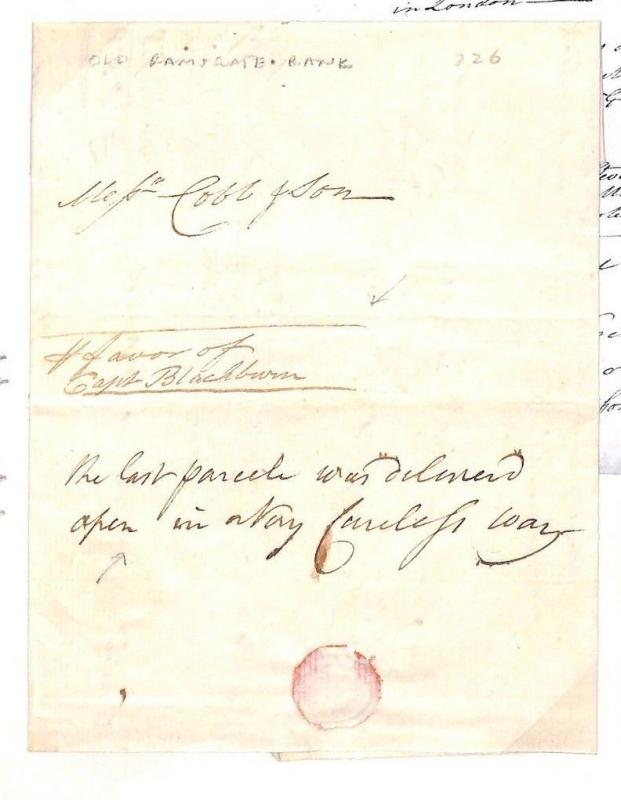 in London
OLD RAMSGATE BANK 226
Messrs Cobb & Son
favor of
Capt Blackburn
the last parcele was deliver'd
open in a Very Careless way